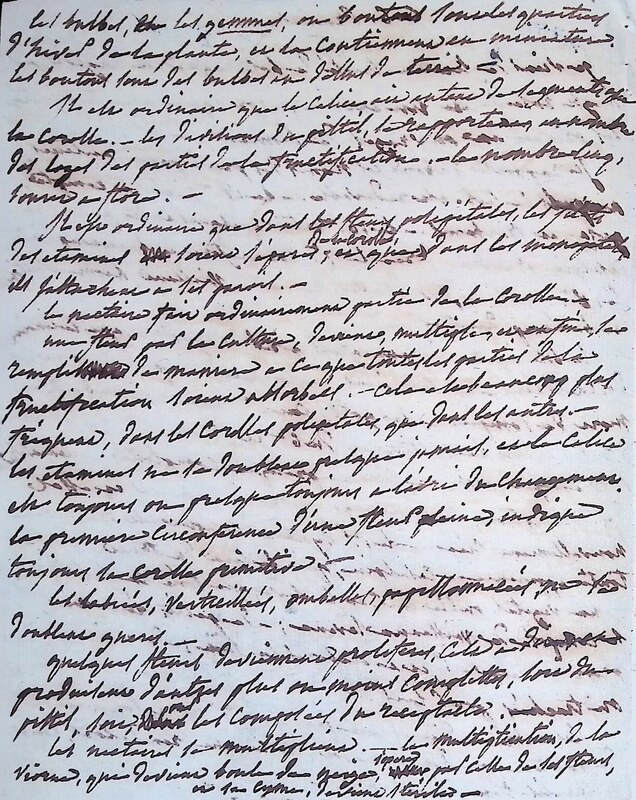 les bulbes, ou les gemmes, ou boutons sont les quartiers
d'hiver de la plante, et la contiennent en miniature.
les boutons sont des bulbes au dessus de terre —
Il est ordinaire que le calice ait autant de segments que
la corolle. — les divisions du pistil, se rapportent au nombre
des loges des parties de la fructification. — le nombre cinq,
donne a flore. —
Il est ordinaire que dans les fleurs polipétales, les
des etamines soient séparés de la corolle, et que dans les monopetales
ils s'attachent a ses parois. —
le nectaire fait ordinairement partie de la corolle —
une fleur par la culture, devient, multiple, et enfin, se
remplit de maniere a ce que toutes les parties de la
fructification soient absorbées. — cela est beaucoup plus
fréquent, dans les corolles polipetales, que dans les autres. —
les etamines ne se doublent presque jamais, et le calice
est toujours ou presque toujours a l'abri du changement.
la premiere circonférence d'une fleur pleine, indique
toujours la corolle primitive —
les labiées, verticillées, ombelles, papillonnacées, ne se
doublent gueres. —
quelques fleurs deviennent proliferes, c'est a dire
produisent d'autres plus ou moins complettes, soit du
pistil, soit, dans les composées du receptacle.
les nectaires se multiplient. — la multiplication, de la
viorne, qui devient boule de neige, s'opere par celle de ses fleurs,
et sa cyme, devient stérile —